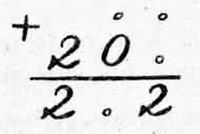 + ° °
2 0 .
2 . 2